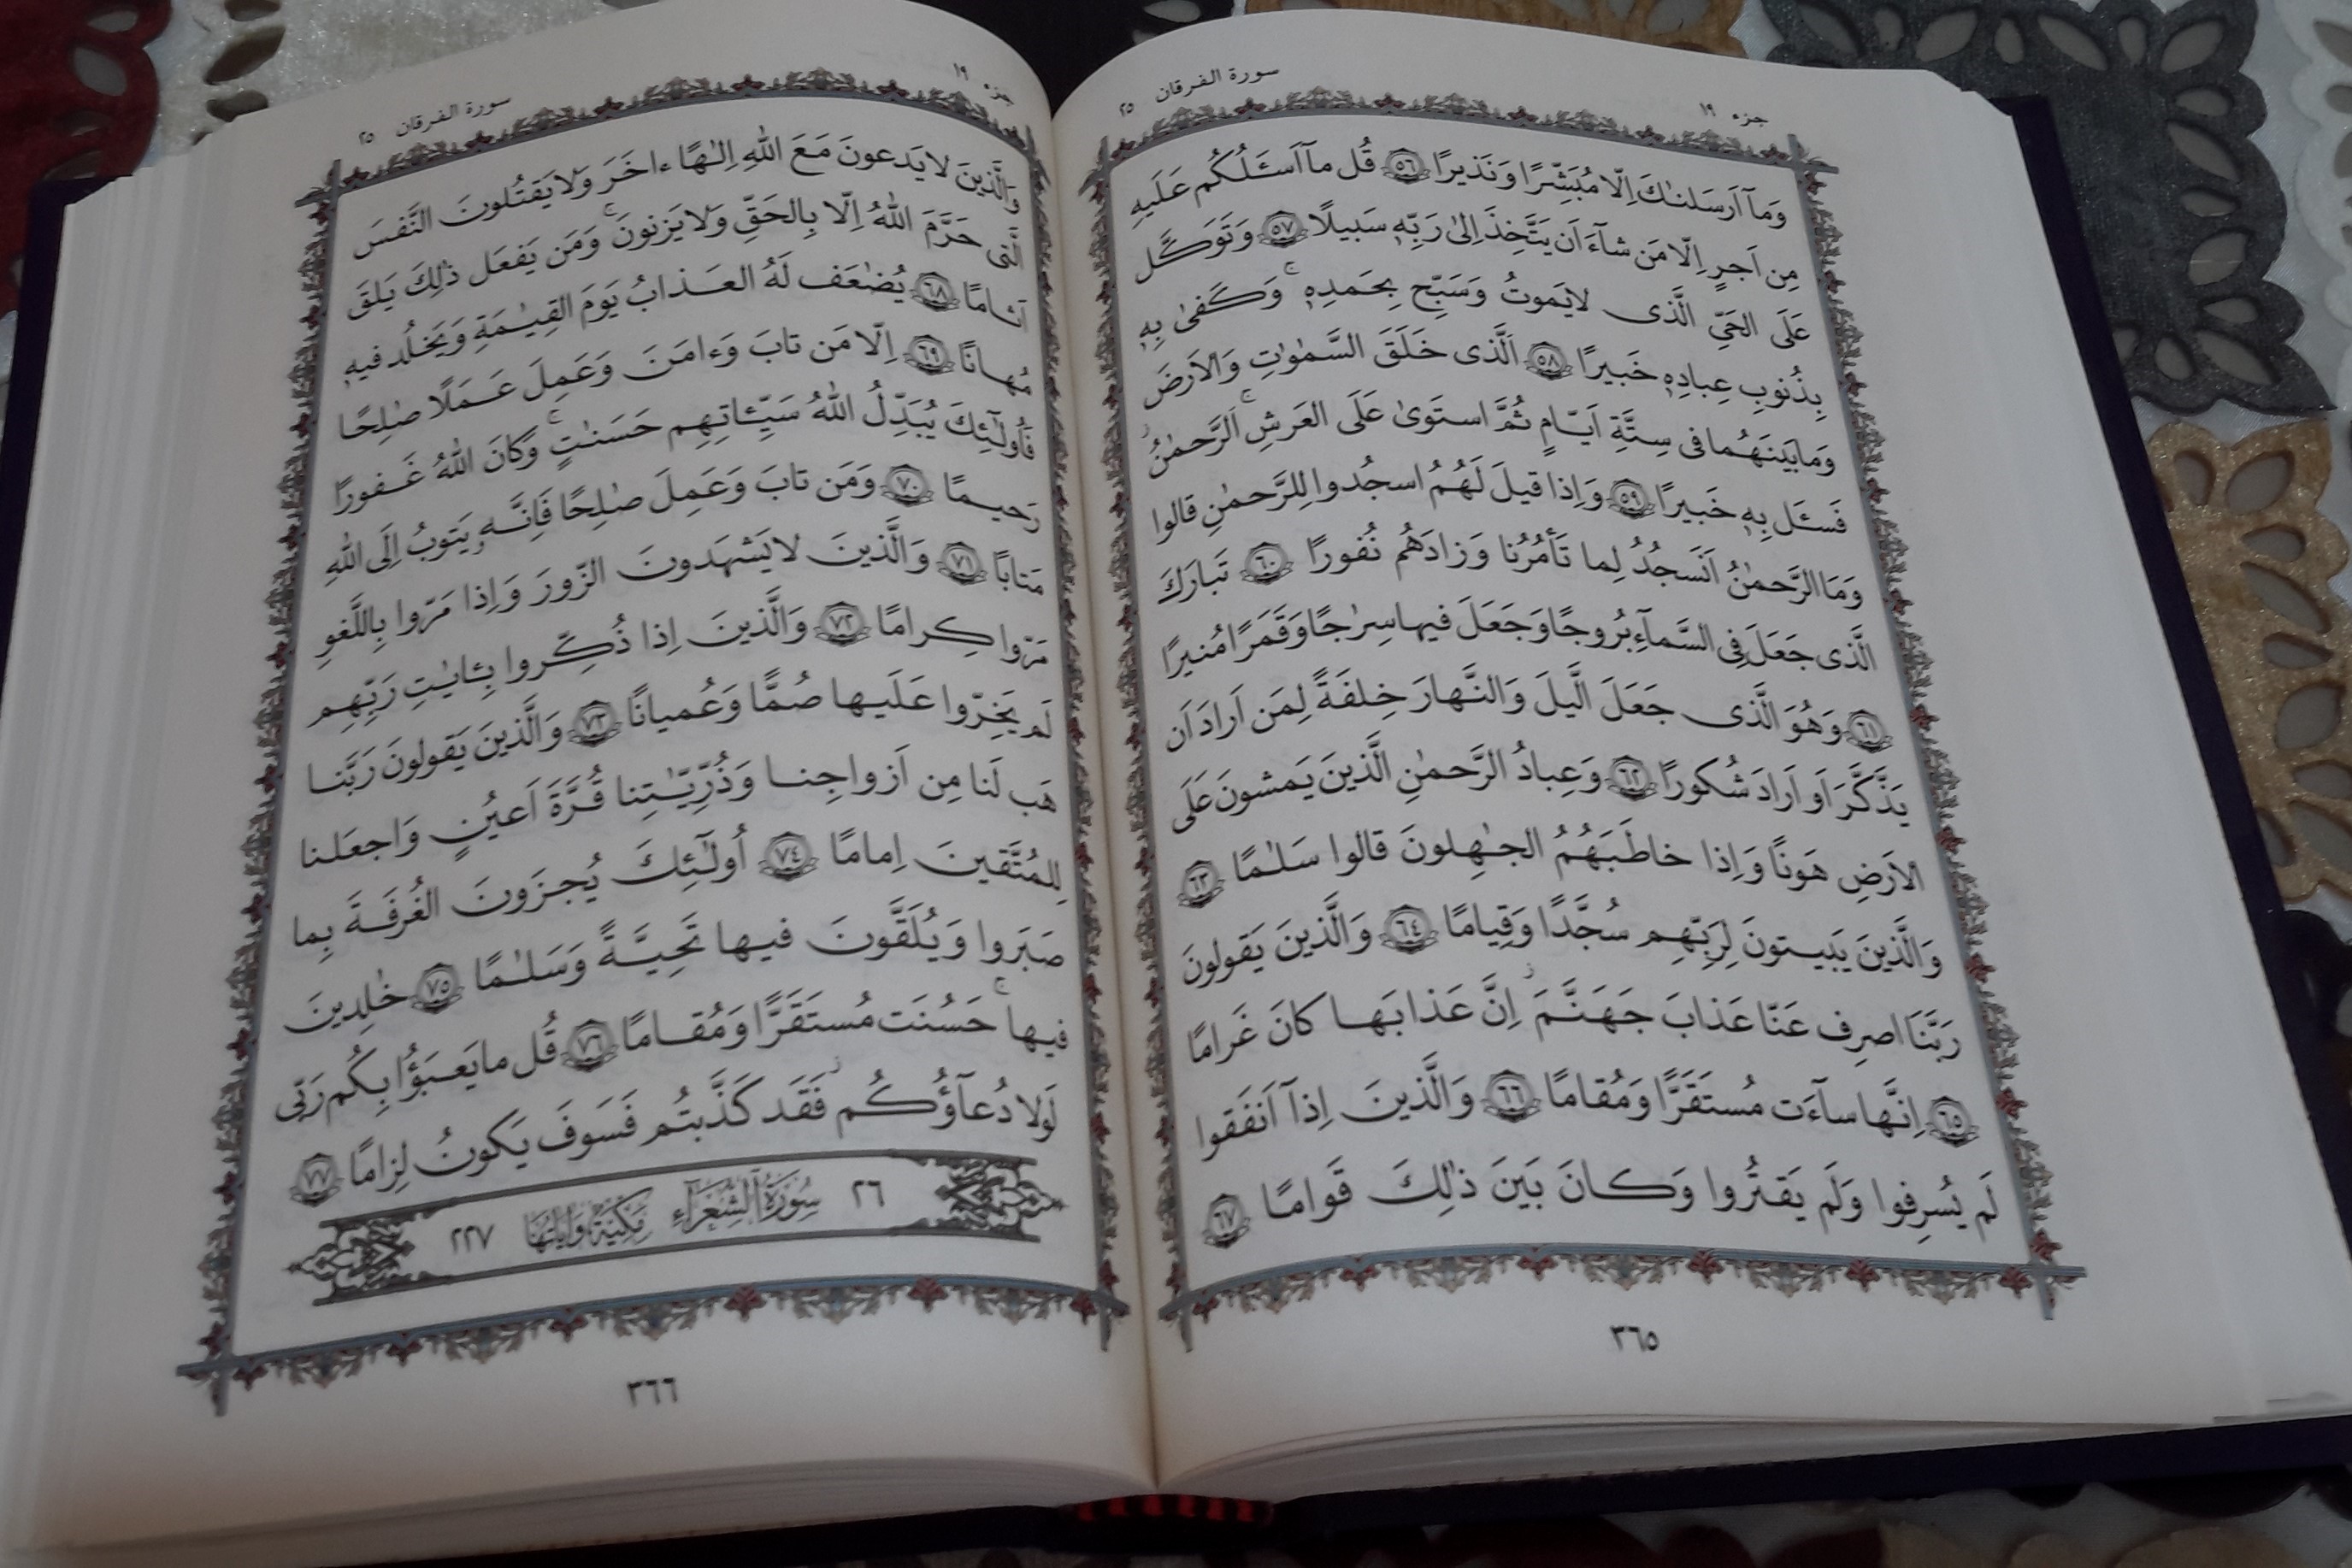 جزء ١٩
سورة الفرقان ٢٥
وَمآ اَرسَلنٰكَ اِلّا مُبَشِّرًا وَنَذيرًا ﴿٥٦﴾ قُل مآ اَسـَٔلُكُم عَلَيهِ
مِن اَجرٍ اِلّا مَن شآءَ اَن يَتَّخِذَ اِلىٰ رَبِّهٖ سَبيلًا ﴿٥٧﴾ وَتَوَكَّل
عَلَى الحَىِّ الَّذى لايَموتُ وَسَبِّح بِحَمدِهٖ ۚ وَكَفىٰ بِهٖ
بِذُنوبِ عِبادِهٖ خَبيرًا ﴿٥٨﴾ اَلَّذى خَلَقَ السَّمٰوٰتِ وَالاَرضَ
وَمابَينَهُما فى سِتَّةِ اَيّامٍ ثُمَّ استَوىٰ عَلَى العَرشِ ۚ اَلرَّحمٰنُ
فَسـَٔل بِهٖ خَبيرًا ﴿٥٩﴾ وَاِذا قيلَ لَهُمُ اسجُدوا لِلرَّحمٰنِ قالوا
وَمَا الرَّحمٰنُ اَنَسجُدُ لِما تَأمُرُنا وَزادَهُم نُفورًا ﴿٦٠﴾ تَبارَكَ
الَّذى جَعَلَ فِى السَّمآءِ بُروجًا وَجَعَلَ فيها سِرٰجًا وَقَمَرًا مُنيرًا
﴿٦١﴾ وَهُوَ الَّذى جَعَلَ الَّيلَ وَالنَّهارَ خِلفَةً لِمَن اَرادَ اَن
يَذَّكَّرَ اَو اَرادَ شُكورًا ﴿٦٢﴾ وَعِبادُ الرَّحمٰنِ الَّذينَ يَمشونَ عَلَى
الاَرضِ هَونًا وَاِذا خاطَبَهُمُ الجٰهِلونَ قالوا سَلٰمًا ﴿٦٣﴾
وَالَّذينَ يَبيتونَ لِرَبِّهِم سُجَّدًا وَقِيامًا ﴿٦٤﴾ وَالَّذينَ يَقولونَ
رَبَّنَا اصرِف عَنّا عَذابَ جَهَنَّمَ ۖ اِنَّ عَذابَها كانَ غَرامًا
﴿٦٥﴾ اِنَّها سآءَت مُستَقَرًّا وَمُقامًا ﴿٦٦﴾ وَالَّذينَ اِذآ اَنفَقوا
لَم يُسرِفوا وَلَم يَقتُروا وَكانَ بَينَ ذٰلِكَ قَوامًا ﴿٦٧﴾
٣٦٥
جزء ١٩
سورة الفرقان ٢٥
وَالَّذينَ لايَدعونَ مَعَ اللهِ اِلٰهًا ءاخَرَ وَلايَقتُلونَ النَّفسَ
الَّتى حَرَّمَ اللهُ اِلّا بِالحَقِّ وَلايَزنونَ ۚ وَمَن يَفعَل ذٰلِكَ يَلقَ
اَثامًا ﴿٦٨﴾ يُضٰعَف لَهُ العَذابُ يَومَ القِيٰمَةِ وَيَخلُد فيهٖ
مُهانًا ﴿٦٩﴾ اِلّا مَن تابَ وَءامَنَ وَعَمِلَ عَمَلًا صٰلِحًا
فَاُولٰٓئِكَ يُبَدِّلُ اللهُ سَيِّـٔاتِهِم حَسَنٰتٍ ۚ وَكانَ اللهُ غَفورًا
رَحيمًا ﴿٧٠﴾ وَمَن تابَ وَعَمِلَ صٰلِحًا فَاِنَّهٗ يَتوبُ اِلَى اللهِ
مَتابًا ﴿٧١﴾ وَالَّذينَ لايَشهَدونَ الزّورَ وَاِذا مَرّوا بِاللَّغوِ
مَرّوا كِرامًا ﴿٧٢﴾ وَالَّذينَ اِذا ذُكِّروا بِـٔايٰتِ رَبِّهِم
لَم يَخِرّوا عَلَيها صُمًّا وَعُميانًا ﴿٧٣﴾ وَالَّذينَ يَقولونَ رَبَّنا
هَب لَنا مِن اَزواجِنا وَذُرِّيّٰتِنا قُرَّةَ اَعيُنٍ وَاجعَلنا
لِلمُتَّقينَ اِمامًا ﴿٧٤﴾ اُولٰٓئِكَ يُجزَونَ الغُرفَةَ بِما
صَبَروا وَيُلَقَّونَ فيها تَحِيَّةً وَسَلٰمًا ﴿٧٥﴾ خٰلِدينَ
فيها ۚ حَسُنَت مُستَقَرًّا وَمُقامًا ﴿٧٦﴾ قُل مايَعبَؤُا بِكُم رَبّى
لَولادُعآؤُكُم ۖ فَقَد كَذَّبتُم فَسَوفَ يَكونُ لِزامًا ﴿٧٧﴾
٢٦ سُورَةُ الشُّعَرَاءِ مَكِّيَّةٌ وَايَاتُهَا ٢٢٧
٣٦٦